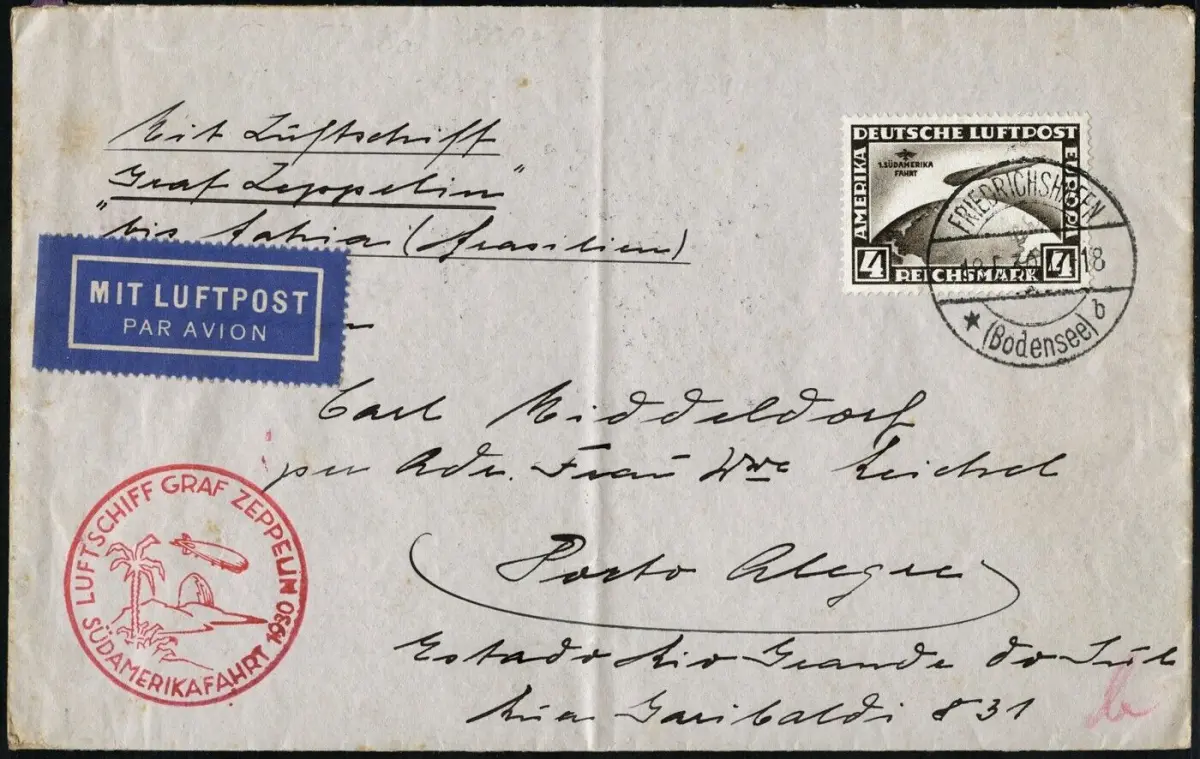 Mit Luftschiff
„Graf Zeppelin"
bis Bahia (Brasilien)
DEUTSCHE LUFTPOST
AMERIKA
EUROPA
1.SÜDAMERIKA
FAHRT
4 REICHSMARK 4
FRIEDRICHSHAFEN
18
★ (Bodensee) b
MIT LUFTPOST
PAR AVION
Carl Middeldorf
per Adr. Frau Wwe Reichel
Porto Alegre
Estado Rio Grande do Sul
Rua Garibaldi 831
LUFTSCHIFF GRAF ZEPPELIN
SÜDAMERIKAFAHRT 1930